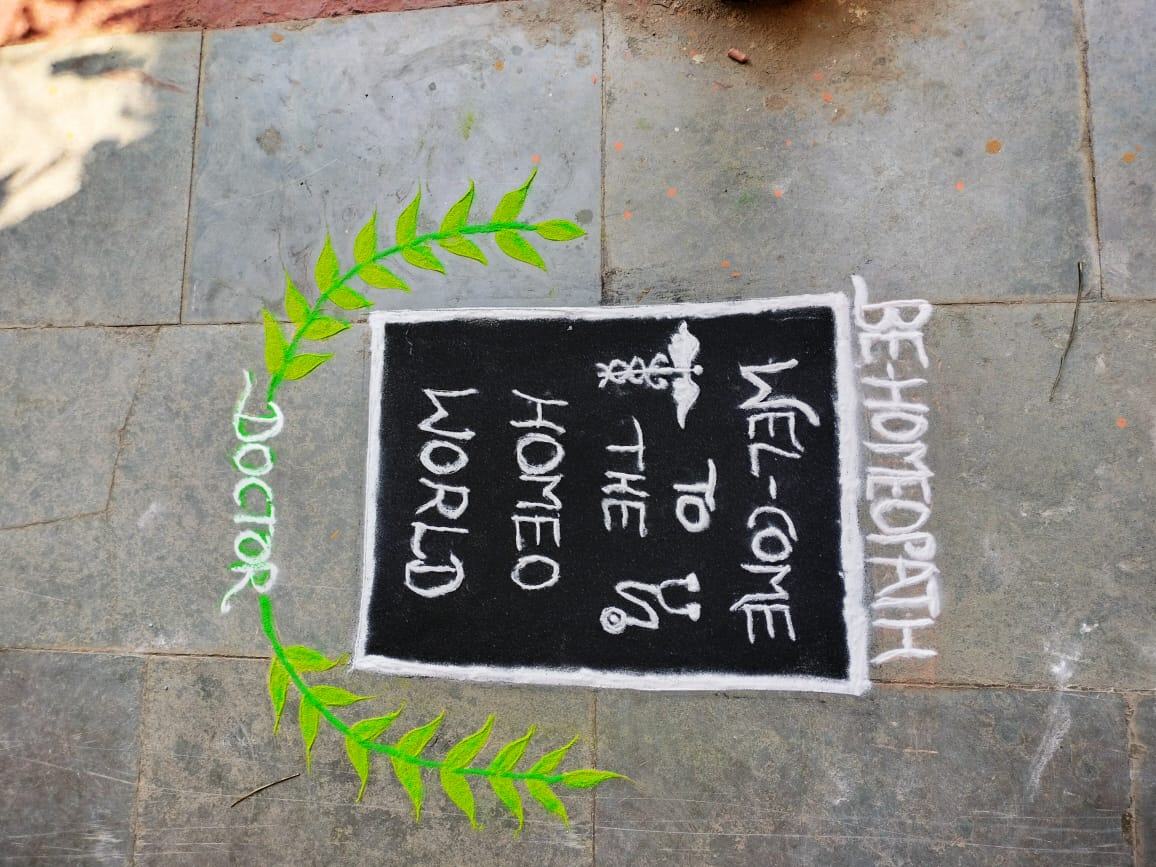 BE-HOMEOPATH
WEL-COME
TO
THE
HOMEO
WORLD
DOCTOR